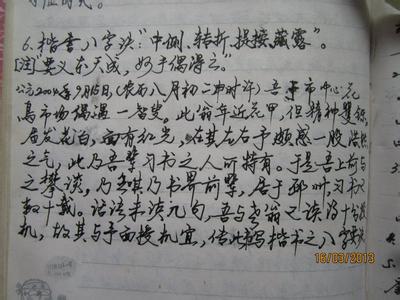 6. 楷书八字诀:"中侧、转折、提接、藏露"。
[注]"要义本天成,妙手偶得之"。
公元2004年9月16日,(农历八月初二申时许)吾于市中心花
鸟市场偶遇一智叟。此翁年近花甲,但精神矍铄,
眉发花白,面有红光,在其左右予颇感一股浩然
之气,此乃吾辈习书之人所特有。于是吾上前与
之攀谈,乃知其乃书界前辈,居于 习书已
数十载。话语未谈几句,吾与老翁又谈得十分投
机,故其与予面授机宜,传此写楷书之八字要诀
16/03/2013